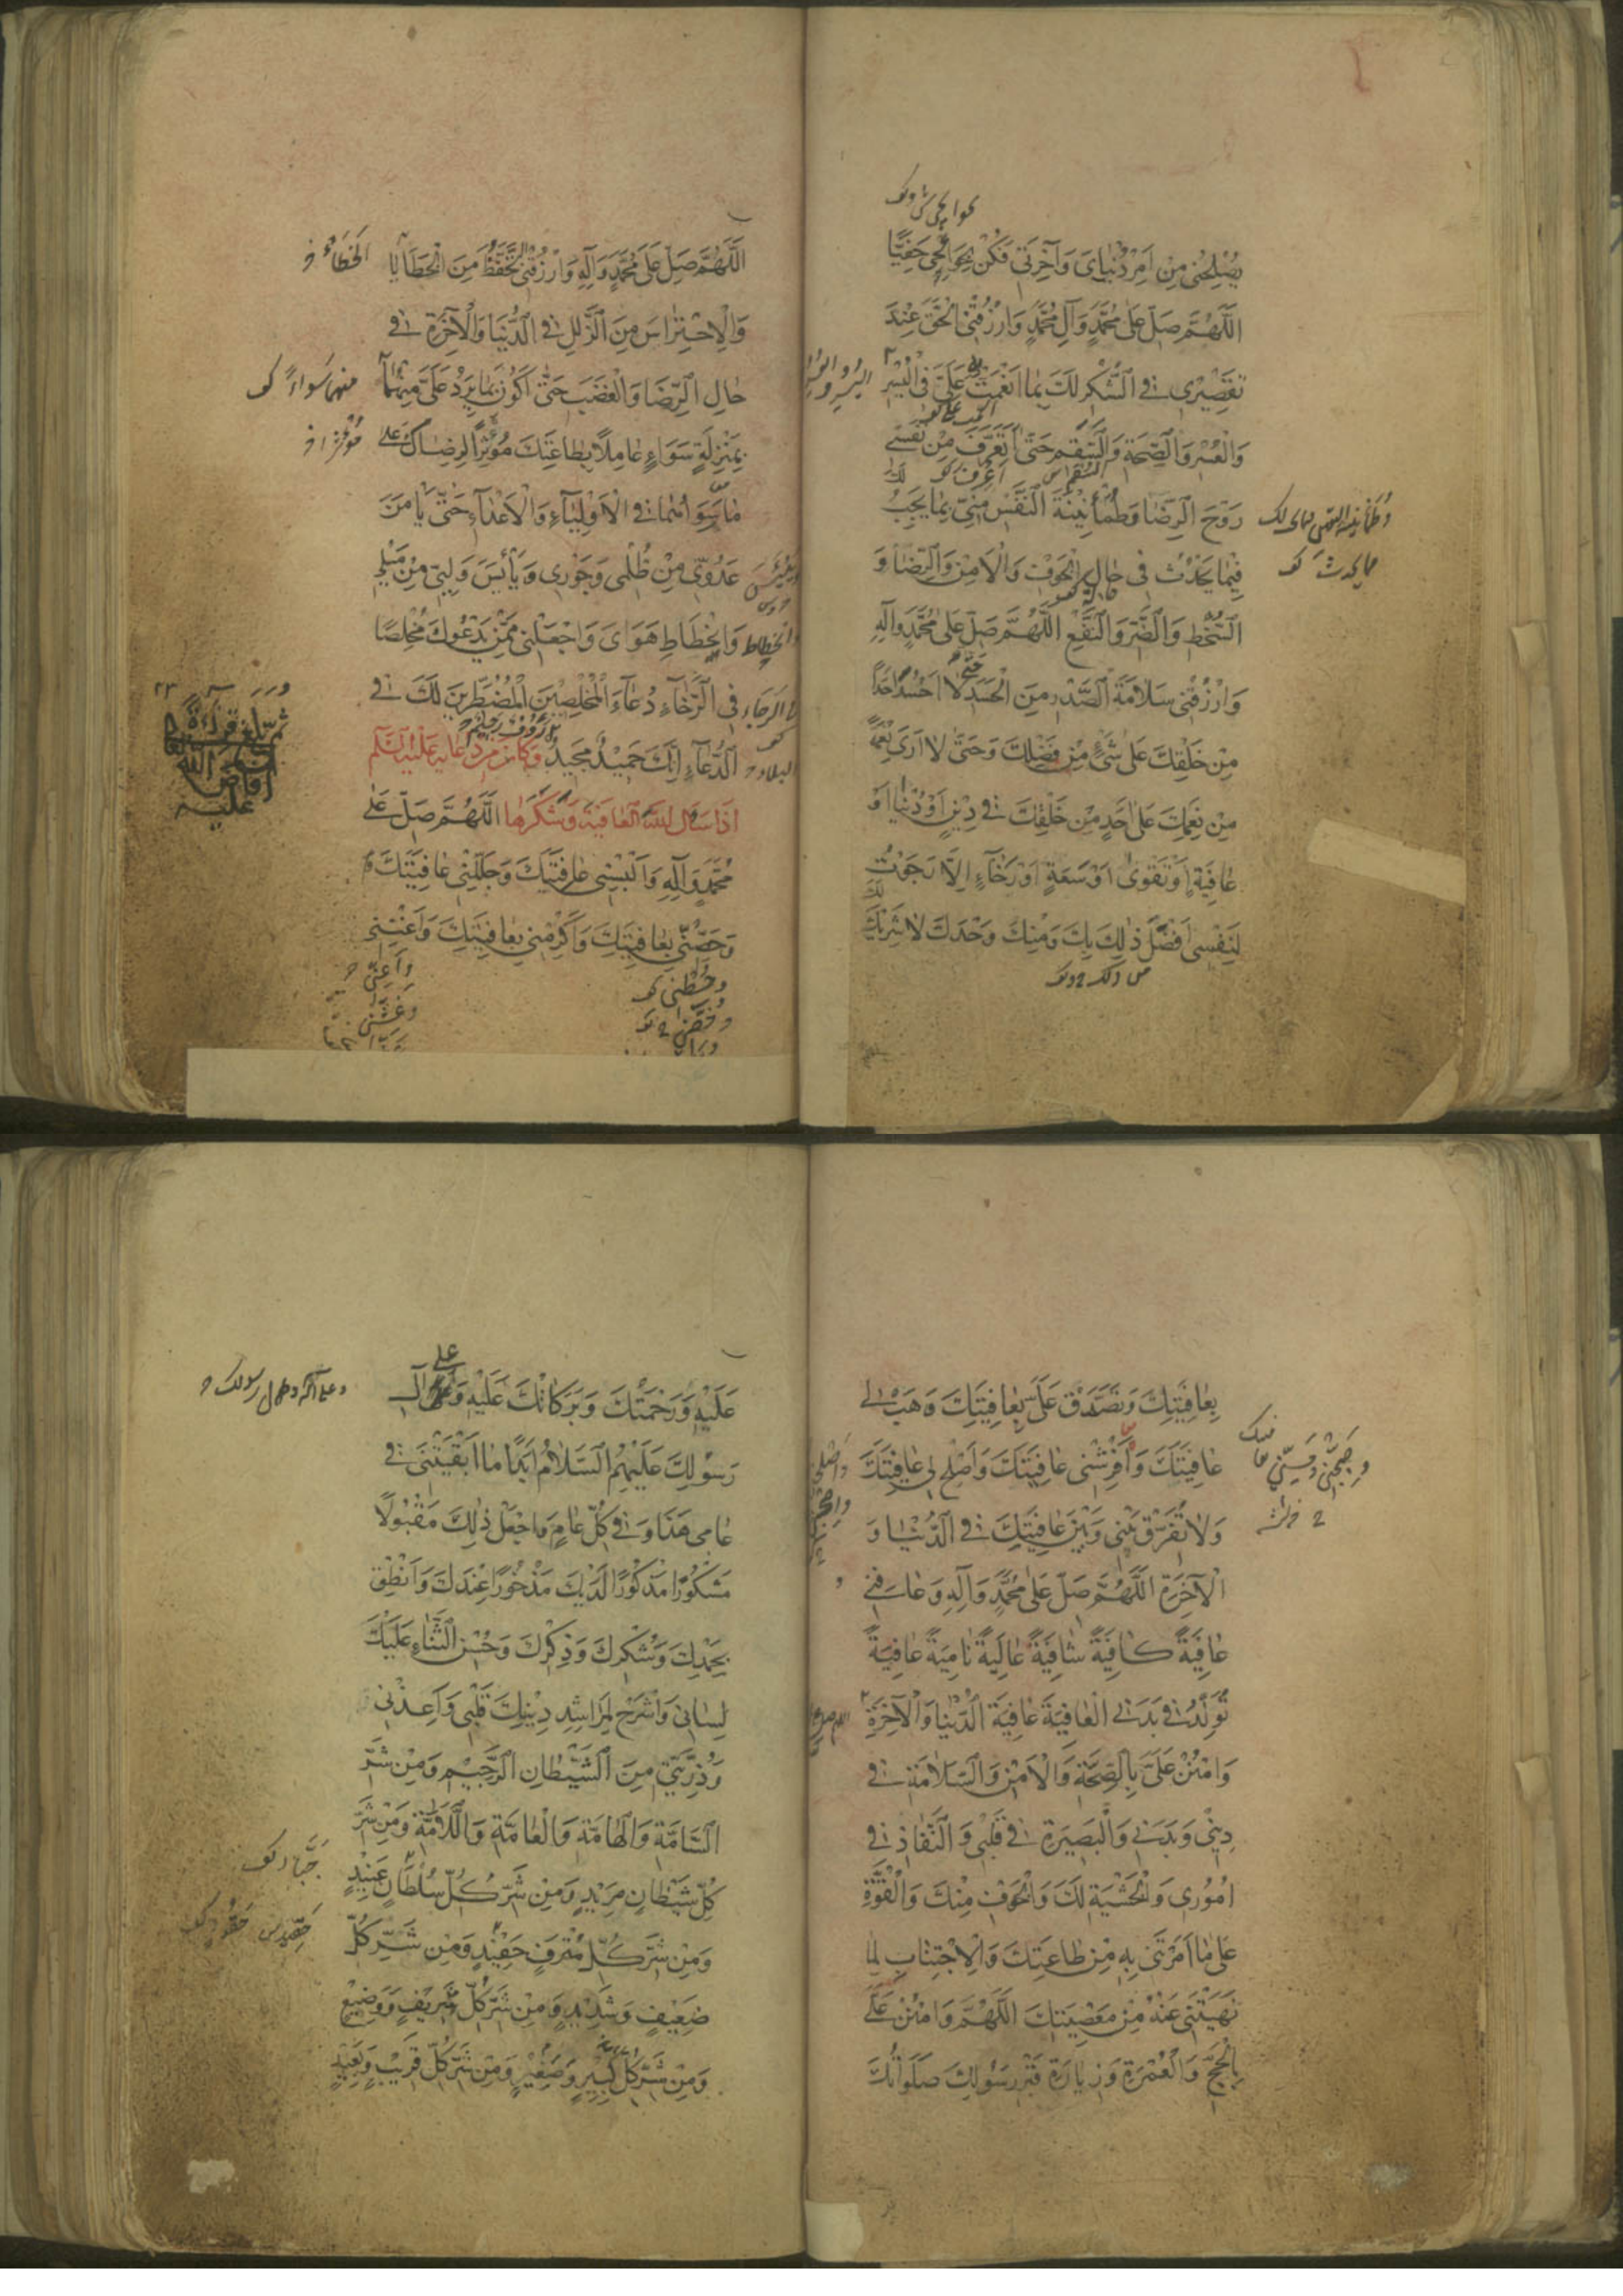 يُصْلِحُنِي مِنْ اَمْرِ دُنْيَايَ وَآخِرَتِي فَكُنْ بِحَوَائِجِي حَفِيًّا
اَللّٰهُمَّ صَلِّ عَلَى مُحَمَّدٍ وَآلِ مُحَمَّدٍ وَارْزُقْنِي الْحَقَّ عِنْدَ
تَقْصِيْرِي فِي الشُّكْرِ لَكَ بِمَا اَنْعَمْتَ عَلَيَّ فِي الْيُسْرِ
وَالْعُسْرِ وَالصِّحَّةِ وَالسَّقَمِ حَتّٰى اَتَعَرَّفَ مِنْ نَفْسِي
رَوْحَ الرِّضَا وَطُمَأْنِيْنَةَ النَّفْسِ مِنِّي بِمَا يَجِبُ لَكَ
فِيْمَا يَحْدُثُ فِي حَالِ الْخَوْفِ وَالْاَمْنِ وَالرِّضَا وَ
السُّخْطِ وَالضَّرِّ وَالنَّفْعِ اَللّٰهُمَّ صَلِّ عَلَى مُحَمَّدٍ وَآلِهِ
وَارْزُقْنِي سَلَامَةَ الصَّدْرِ مِنَ الْحَسَدِ حَتّٰى لَا اَحْسُدَ اَحَدًا
مِنْ خَلْقِكَ عَلَى شَيْءٍ مِنْ فَضْلِكَ وَحَتّٰى لَا اَرَى نِعْمَةً
مِنْ نِعَمِكَ عَلَى اَحَدٍ مِنْ خَلْقِكَ فِي دِيْنٍ اَوْ دُنْيَا اَوْ
عَافِيَةٍ اَوْ تَقْوٰى اَوْ سَعَةٍ اَوْ رَخَاءٍ اِلَّا رَجَوْتُ
لِنَفْسِي اَفْضَلَ ذٰلِكَ بِكَ وَمِنْكَ وَحْدَكَ لَا شَرِيْكَ لَكَ
اَللّٰهُمَّ صَلِّ عَلَى مُحَمَّدٍ وَآلِهِ وَارْزُقْنِي التَّحَفُّظَ مِنَ الْخَطَايَا
وَالْاِحْتِرَاسَ مِنَ الزَّلَلِ فِي الدُّنْيَا وَالْآخِرَةِ فِي
حَالِ الرِّضَا وَالْغَضَبِ حَتّٰى اَكُوْنَ بِمَا يَرِدُ عَلَيَّ مِنْهُمَا
بِمَنْزِلَةٍ سَوَاءٍ عَامِلًا بِطَاعَتِكَ مُؤْثِرًا لِرِضَاكَ عَلَى
مَا سِوَاهُمَا فِي الْاَوْلِيَاءِ وَالْاَعْدَاءِ حَتّٰى يَأْمَنَ
عَدُوِّي مِنْ ظُلْمِي وَجَوْرِي وَيَأْيَسَ وَلِيِّي مِنْ مَيْلِي
وَانْحِطَاطِ هَوَايَ وَاجْعَلْنِي مِمَّنْ يَدْعُوْكَ مُخْلِصًا
فِي الرَّخَاءِ دُعَاءَ الْمُخْلِصِيْنَ الْمُضْطَرِّيْنَ لَكَ فِي
الدُّعَاءِ اِنَّكَ حَمِيْدٌ مَجِيْدٌ وَكَانَ مِنْ دُعَائِهِ عَلَيْهِ السَّلَام
اِذَا سَأَلَ اللّٰهَ الْعَافِيَةَ وَشَكَرَهَا اَللّٰهُمَّ صَلِّ عَلَى
مُحَمَّدٍ وَآلِهِ وَاَلْبِسْنِي عَافِيَتَكَ وَجَلِّلْنِي عَافِيَتَكَ
وَحَصِّنِّي بِعَافِيَتِكَ وَاَكْرِمْنِي بِعَافِيَتِكَ وَاَغْنِنِي
بِعَافِيَتِكَ وَتَصَدَّقْ عَلَيَّ بِعَافِيَتِكَ وَهَبْ لِي
عَافِيَتَكَ وَاَفْرِشْنِي عَافِيَتَكَ وَاَصْلِحْ لِي عَافِيَتَكَ
وَلَا تُفَرِّقْ بَيْنِي وَبَيْنَ عَافِيَتِكَ فِي الدُّنْيَا وَ
الْآخِرَةِ اَللّٰهُمَّ صَلِّ عَلَى مُحَمَّدٍ وَآلِهِ وَعَافِنِي
عَافِيَةً كَافِيَةً شَافِيَةً عَالِيَةً نَامِيَةً عَافِيَةً
تُوَلِّدُ فِي بَدَنِي الْعَافِيَةَ عَافِيَةَ الدُّنْيَا وَالْآخِرَةِ
وَامْنُنْ عَلَيَّ بِالصِّحَّةِ وَالْاَمْنِ وَالسَّلَامَةِ فِي
دِيْنِي وَبَدَنِي وَالْبَصِيْرَةِ فِي قَلْبِي وَالنَّفَاذِ فِي
اُمُوْرِي وَالْخَشْيَةِ لَكَ وَالْخَوْفِ مِنْكَ وَالْقُوَّةِ
عَلَى مَا اَمَرْتَنِي بِهِ مِنْ طَاعَتِكَ وَالْاِجْتِنَابِ لِمَا
نَهَيْتَنِي عَنْهُ مِنْ مَعْصِيَتِكَ اَللّٰهُمَّ وَامْنُنْ عَلَيَّ
بِالْحَجِّ وَالْعُمْرَةِ وَزِيَارَةِ قَبْرِ رَسُوْلِكَ صَلَوَاتُكَ
عَلَيْهِ وَرَحْمَتُكَ وَبَرَكَاتُكَ عَلَيْهِ وَعَلَى آلِ
رَسُوْلِكَ عَلَيْهِمُ السَّلَامُ اَبَدًا مَا اَبْقَيْتَنِي فِي
عَامِي هَذَا وَفِي كُلِّ عَامٍ وَاجْعَلْ ذٰلِكَ مَقْبُوْلًا
مَشْكُوْرًا مَذْكُوْرًا لَدَيْكَ مَذْخُوْرًا عِنْدَكَ وَاَنْطِقْ
بِحَمْدِكَ وَشُكْرِكَ وَذِكْرِكَ وَحُسْنِ الثَّنَاءِ عَلَيْكَ
لِسَانِي وَاشْرَحْ لِمَرَاشِدِ دِيْنِكَ قَلْبِي وَاَعِذْنِي
وَذُرِّيَّتِي مِنَ الشَّيْطَانِ الرَّجِيْمِ وَمِنْ شَرِّ
السَّامَّةِ وَالْهَامَّةِ وَالْعَامَّةِ وَاللَّامَّةِ وَمِنْ شَرِّ
كُلِّ شَيْطَانٍ مَرِيْدٍ وَمِنْ شَرِّ كُلِّ سُلْطَانٍ عَنِيْدٍ
وَمِنْ شَرِّ كُلِّ مُتْرَفٍ حَفِيْدٍ وَمِنْ شَرِّ كُلِّ
ضَعِيْفٍ وَشَدِيْدٍ وَمِنْ شَرِّ كُلِّ شَرِيْفٍ وَوَضِيْعٍ
وَمِنْ شَرِّ كُلِّ كَبِيْرٍ وَصَغِيْرٍ وَمِنْ شَرِّ كُلِّ قَرِيْبٍ وَبَعِيْدٍ